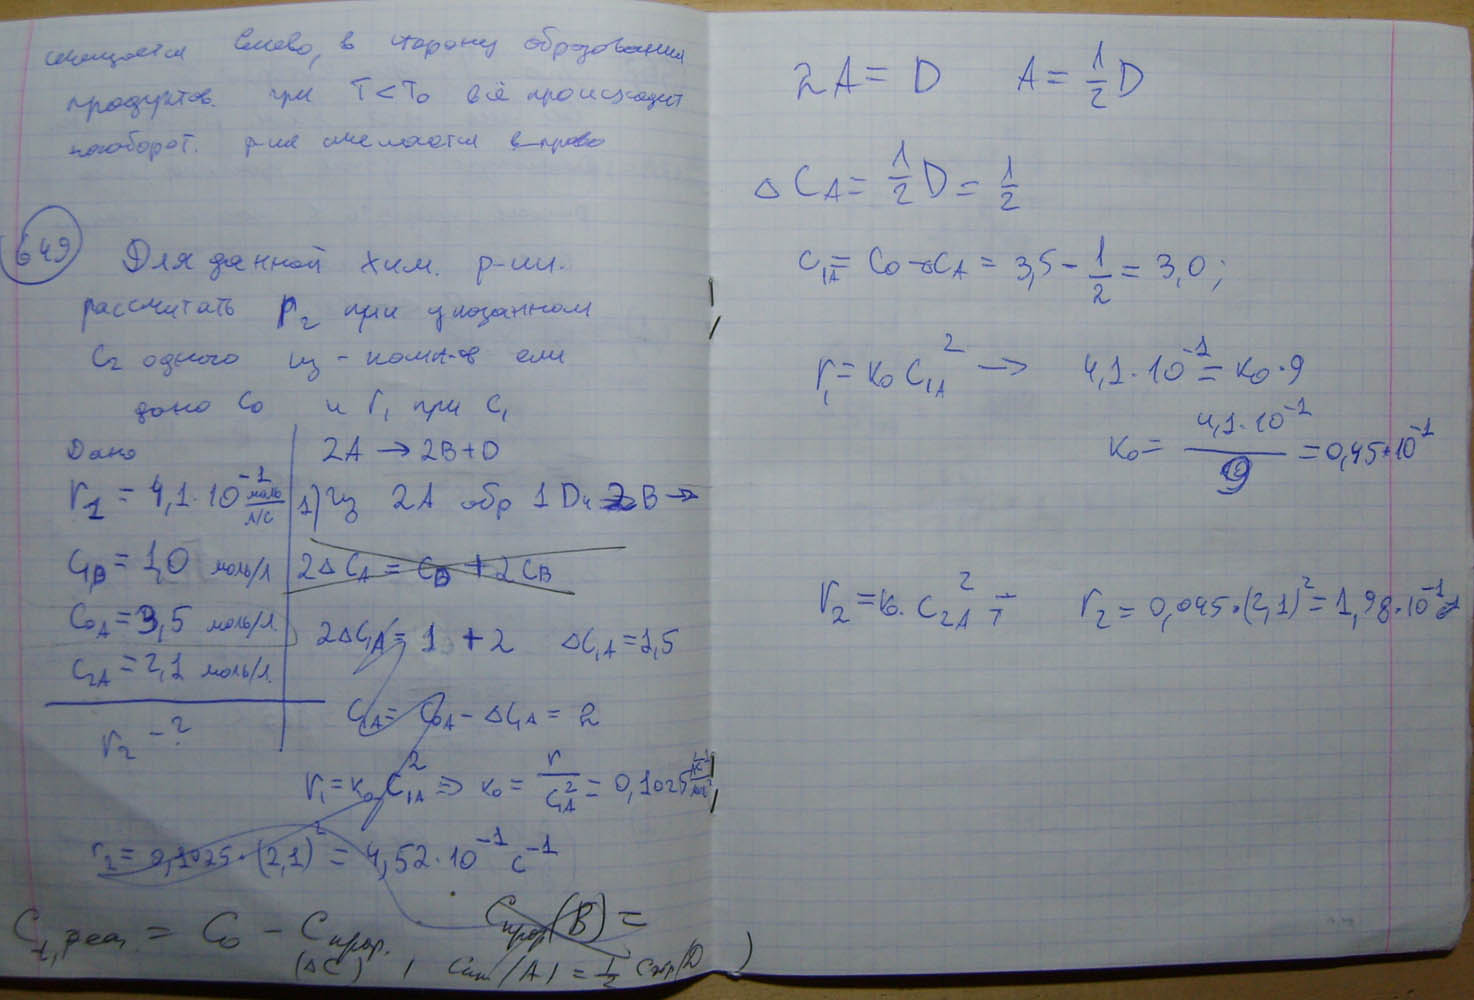 смещается влево, в сторону образования
продуктов. при T<T₀ всё происходит
наоборот. р-ия смещается вправо
649
Для данной хим. р-ии.
рассчитать r₂ при указанном
C₂ одного из комп-ов если
дано C₀ и r₁ при C₁
Дано
r₁ = 4,1·10⁻¹ моль/л/с
C₁B = 1,0 моль/л
C₀A = 3,5 моль/л
C₂A = 2,1 моль/л.
r₂ - ?
2A → 2B + D
1) Из 2A обр 1D и 2B →
2ΔCA = CB + 2CB
2ΔC₁A = 1 + 2 ΔC₁A = 1,5
C₁A = C₀A - ΔC₁A = 2
r₁ = k₀ C₁A² => k₀ = r/C₁A² = 0,1025
r₂ = 0,1025·(2,1)² = 4,52·10⁻¹ с⁻¹
C₁, реаг = C₀ - Cпрор. Cпрор(B) =
(ΔC) , (A) = 1/2 (D)
2A = D A = 1/2 D
ΔCA = 1/2 D = 1/2
C₁A = C₀ - CA = 3,5 - 1/2 = 3,0;
r₁ = k₀ C₁A² → 4,1·10⁻¹ = k₀·9
k₀ = 4,1·10⁻¹/9 = 0,45·10⁻¹
r₂ = k₀· C₂A² =
r₂ = 0,045·(2,1)² = 1,98·10⁻¹